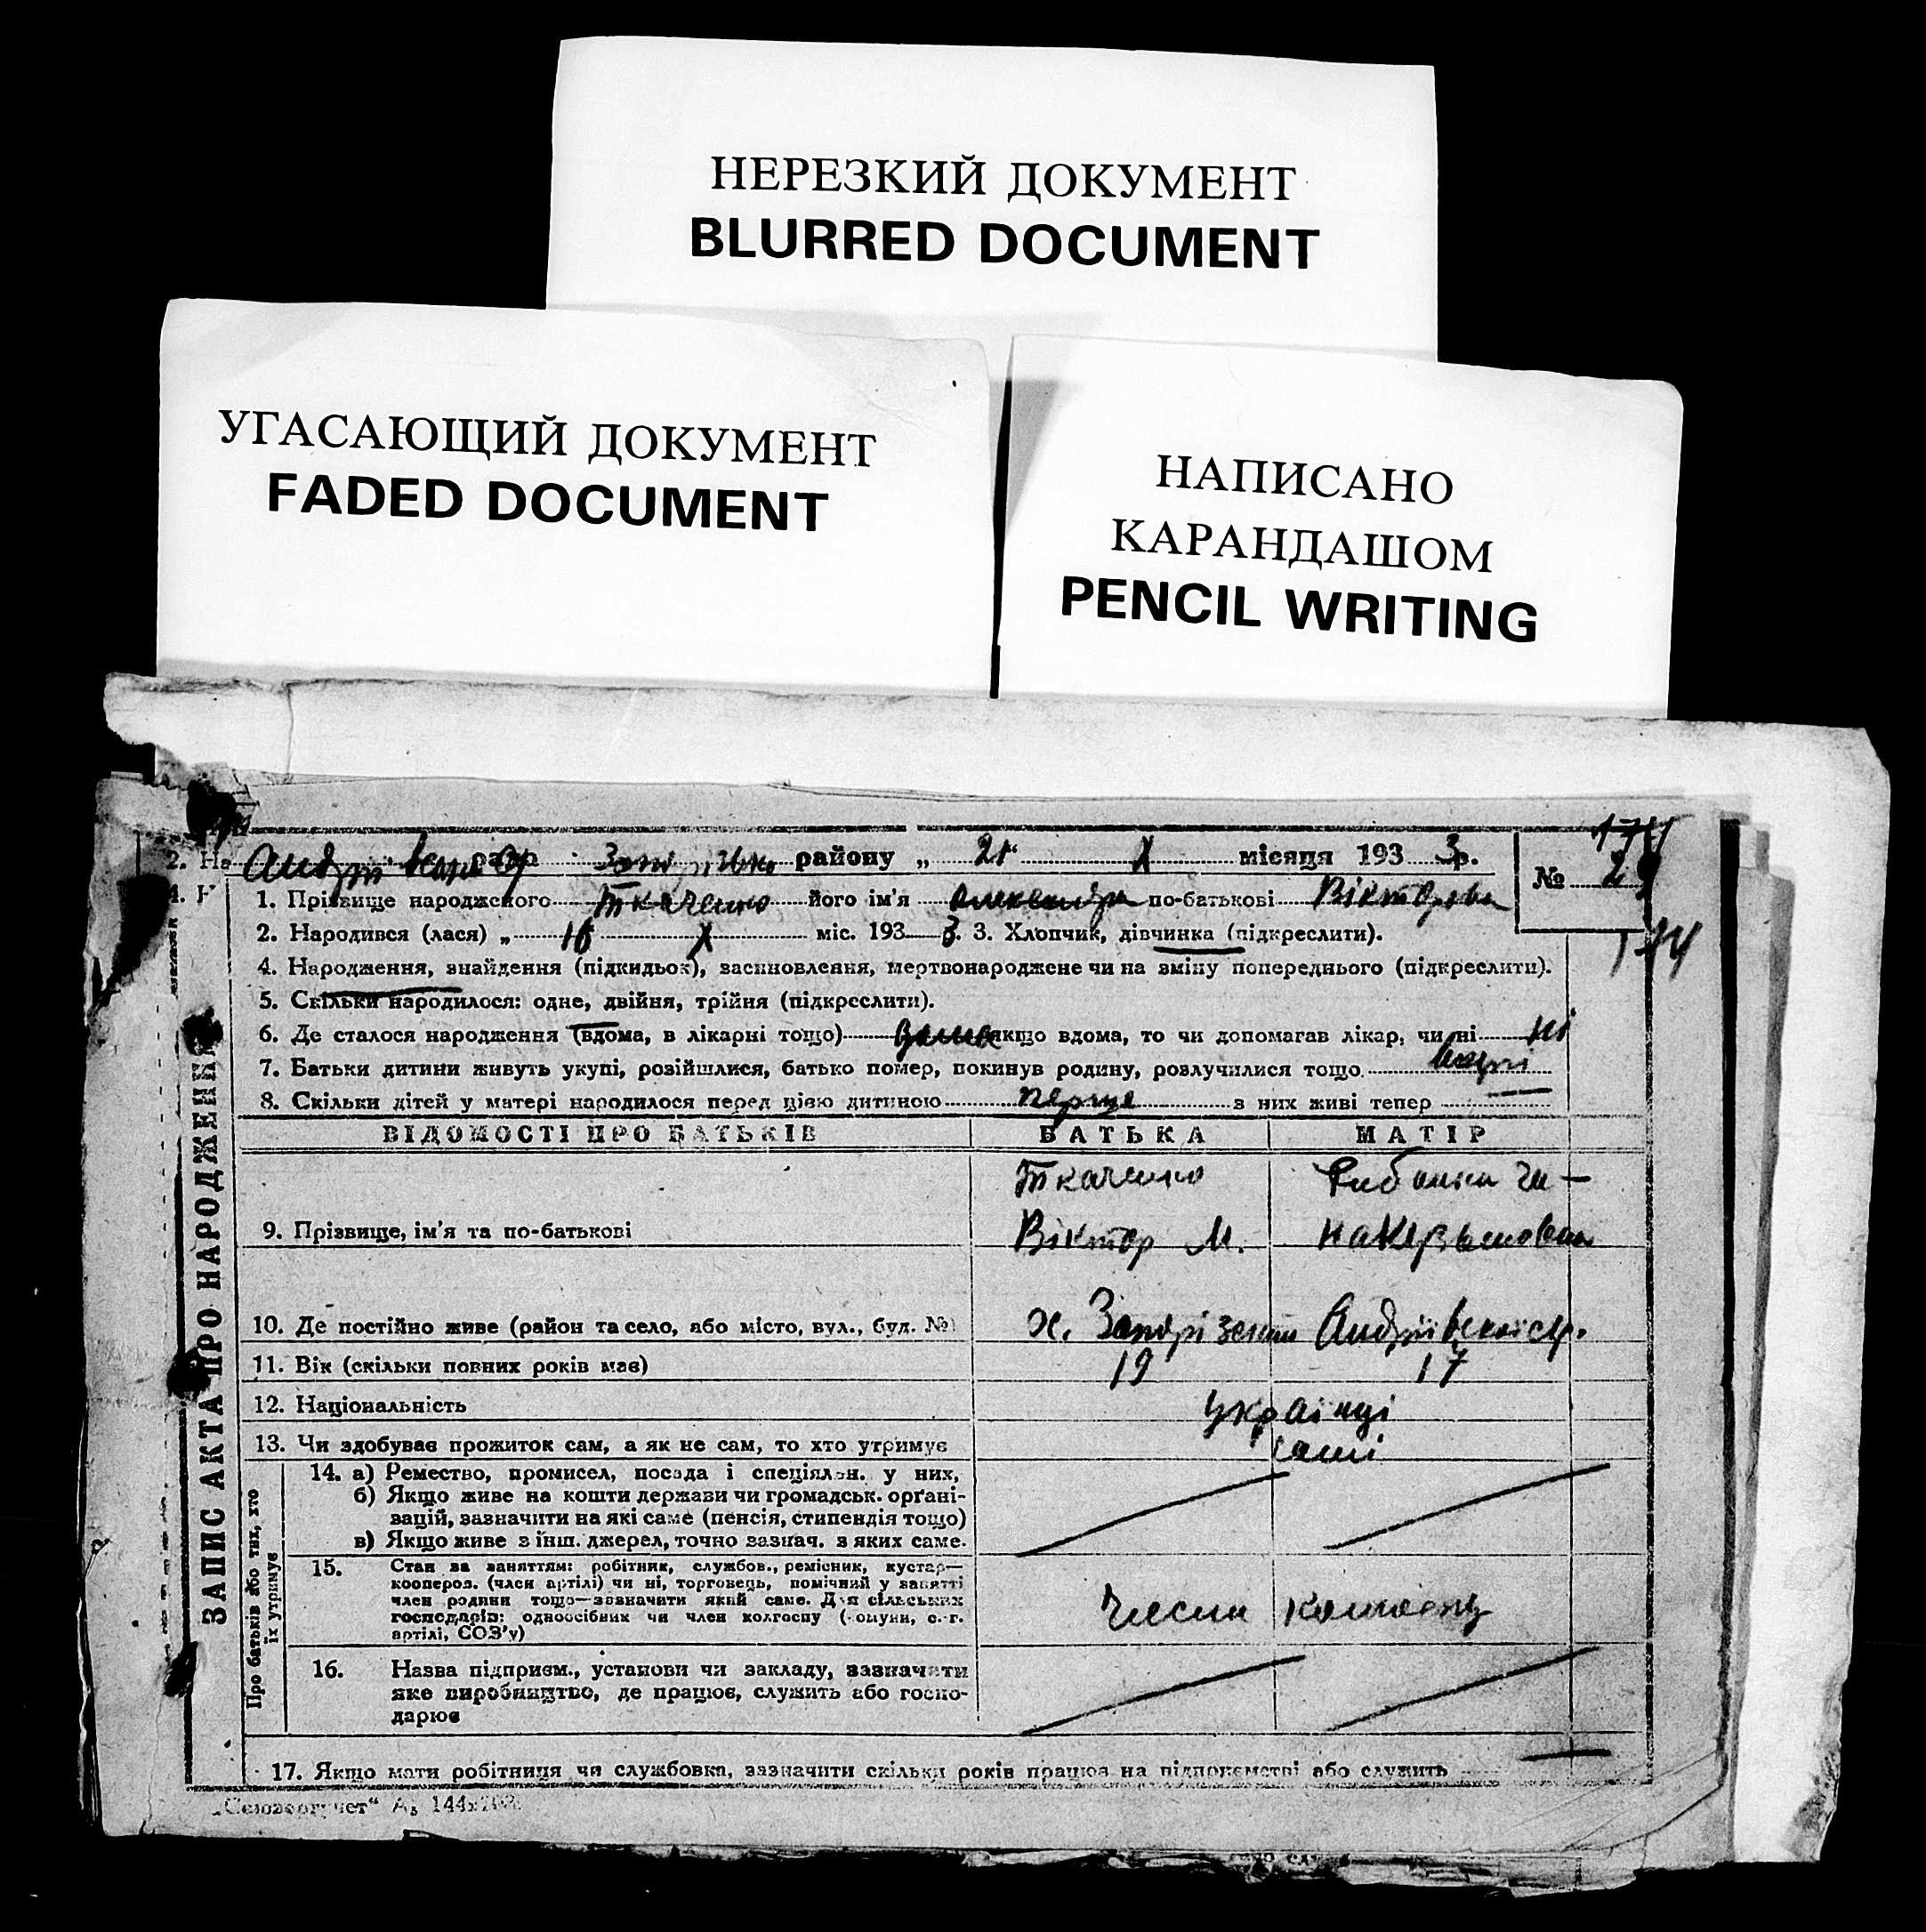 НЕРЕЗКИЙ ДОКУМЕНТ
BLURRED DOCUMENT
УГАСАЮЩИЙ ДОКУМЕНТ
FADED DOCUMENT
НАПИСАНО
КАРАНДАШОМ
PENCIL WRITING
району „ 21 X місяця 193 3р.
№ 2
1. Прізвище народженого Ткаченко його ім'я по-батькові Вікторовна
174
2. Народився (лася) „ 16 X міс. 193 3. 3. Хлопчик, дівчинка (підкреслити).
4. Народження, знайдення (підкидьок), засиновлення, мертвонароджене чи на зміну попереднього (підкреслити).
5. Скільки народилося: одне, двійня, трійня (підкреслити).
6. Де сталося народження (вдома, в лікарні тощо) вдома якщо вдома, то чи допомагав лікар, чи ні ні
7. Батьки дитини живуть укупі, розійшлися, батько помер, покинув родину, розлучилися тощо. вкупі
8. Скільки дітей у матері народилося перед цією дитиною перше з них живі тепер —
ЗАПИС АКТА ПРО НАРОДЖЕННЯ
ВІДОМОСТІ ПРО БАТЬКІВ БАТЬКА МАТІР
Ткаченко
9. Прізвище, ім'я та по-батькові Віктор М.
10. Де постійно живе (район та село, або місто, вул., буд. №) х. Андріївської с/р.
11. Вік (скільки повних років має) 19 17
12. Національність українці
13. Чи здобуває прожиток сам, а як не сам, то хто утримує самі
Про батьків або тих, хто
їх утримує
14. а) Ремество, промисел, посада і спеціяльн. у них,
б) Якщо живе на кошти держави чи громадськ. орґані-
зацій, зазначити на які саме (пенсія, стипендія тощо)
в) Якщо живе з інш. джерел, точно зазнач. з яких саме.
15. Стан за заняттям: робітник, службов., ремісник, кустар—
коопероз. (член артілі) чи ні, торговець, помічний у занятті
член родини тощо—зазначити який саме. Для сільських
господарів: одноосібник чи член колгоспу (комуни, с.-г.
артілі, СОЗ'у)
Члени колгоспу
16. Назва підприєм., установи чи закладу, зазначити
яке виробництво, де працює, служить або госпо-
дарює
17. Якщо мати робітниця чи службовка, зазначити скільки років працює на підприємстві або служить —